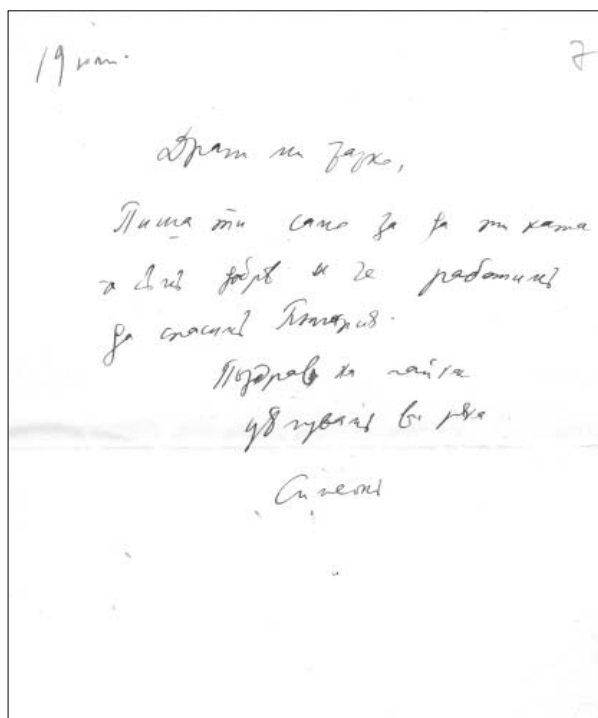 19 7
Драги ми
Пиша ти само за да ти кажа
че съмъ добрѣ и че работимъ
да спасимъ България.
Поздрав на майка
цѣлувамъ ви рѫка
Симеонъ